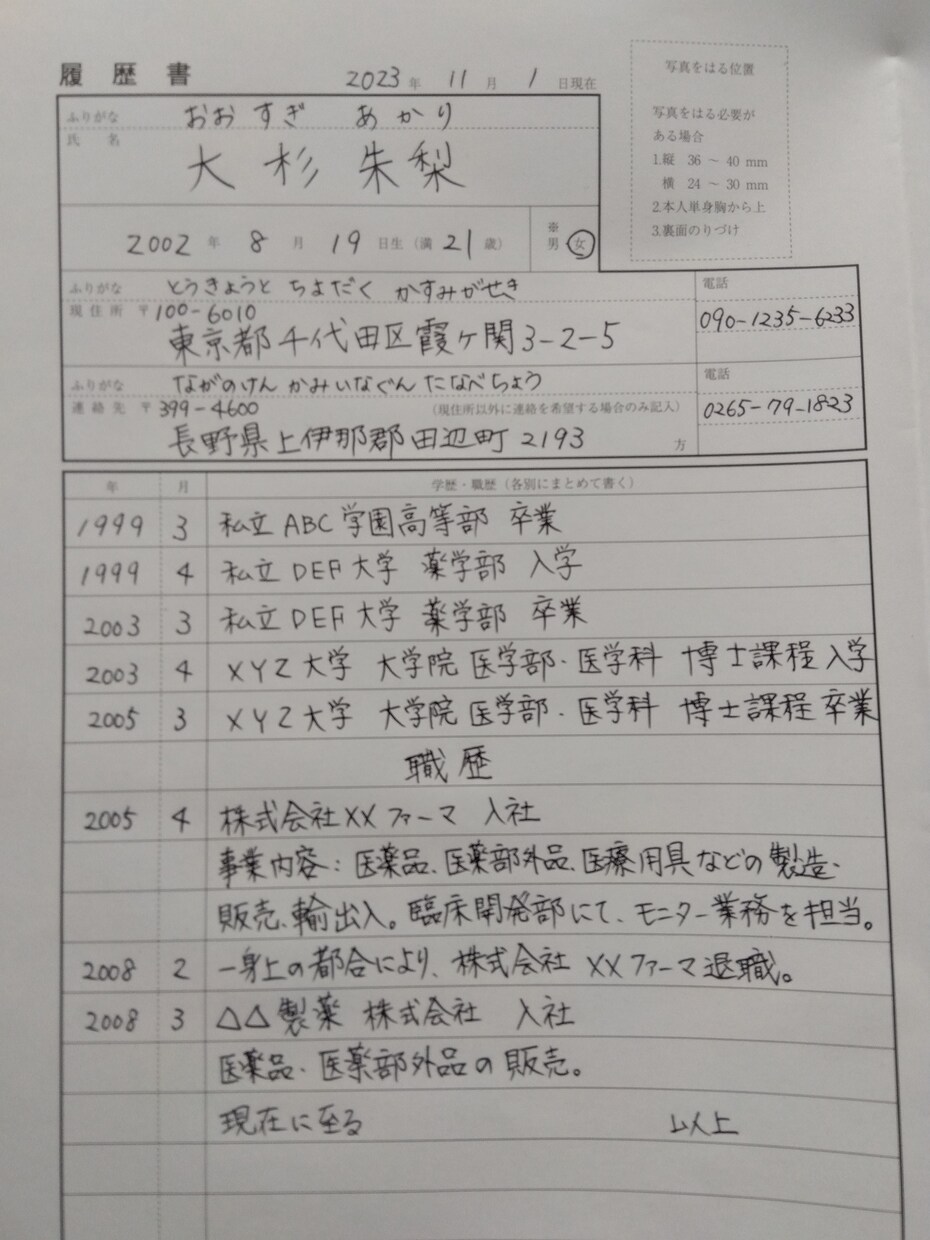 履歴書 2023年 11月 1日現在
写真をはる位置
写真をはる必要が
ある場合
1.縦 36 ~ 40 mm
横 24 ~ 30 mm
2.本人単身胸から上
3.裏面のりづけ
ふりがな おおすぎ あかり
氏 名 大杉朱梨
2002年 8月 19日生 (満21歳) ※男 女
ふりがな とうきょうと ちよだく かすみがせき
電話
現住所 〒100-6010
090-1235-6233
東京都千代田区霞ヶ関3-2-5
ふりがな ながのけん かみいなぐん たなべちょう
電話
連絡先 〒399-4600 (現住所以外に連絡を希望する場合のみ記入)
0265-79-1823
長野県上伊那郡田辺町2193 方
年 月 学歴・職歴(各別にまとめて書く)
1999 3 私立ABC学園高等部 卒業
1999 4 私立DEF大学 薬学部 入学
2003 3 私立DEF大学 薬学部 卒業
2003 4 XYZ大学 大学院 医学部・医学科 博士課程入学
2005 3 XYZ大学 大学院 医学部・医学科 博士課程卒業
職歴
2005 4 株式会社XXファーマ 入社
事業内容:医薬品、医薬部外品、医療用具などの製造・
販売、輸出入。臨床開発部にて、モニター業務を担当。
2008 2 一身上の都合により、株式会社XXファーマ退職。
2008 3 △△製薬 株式会社 入社
医薬品・医薬部外品の販売。
現在に至る 以上